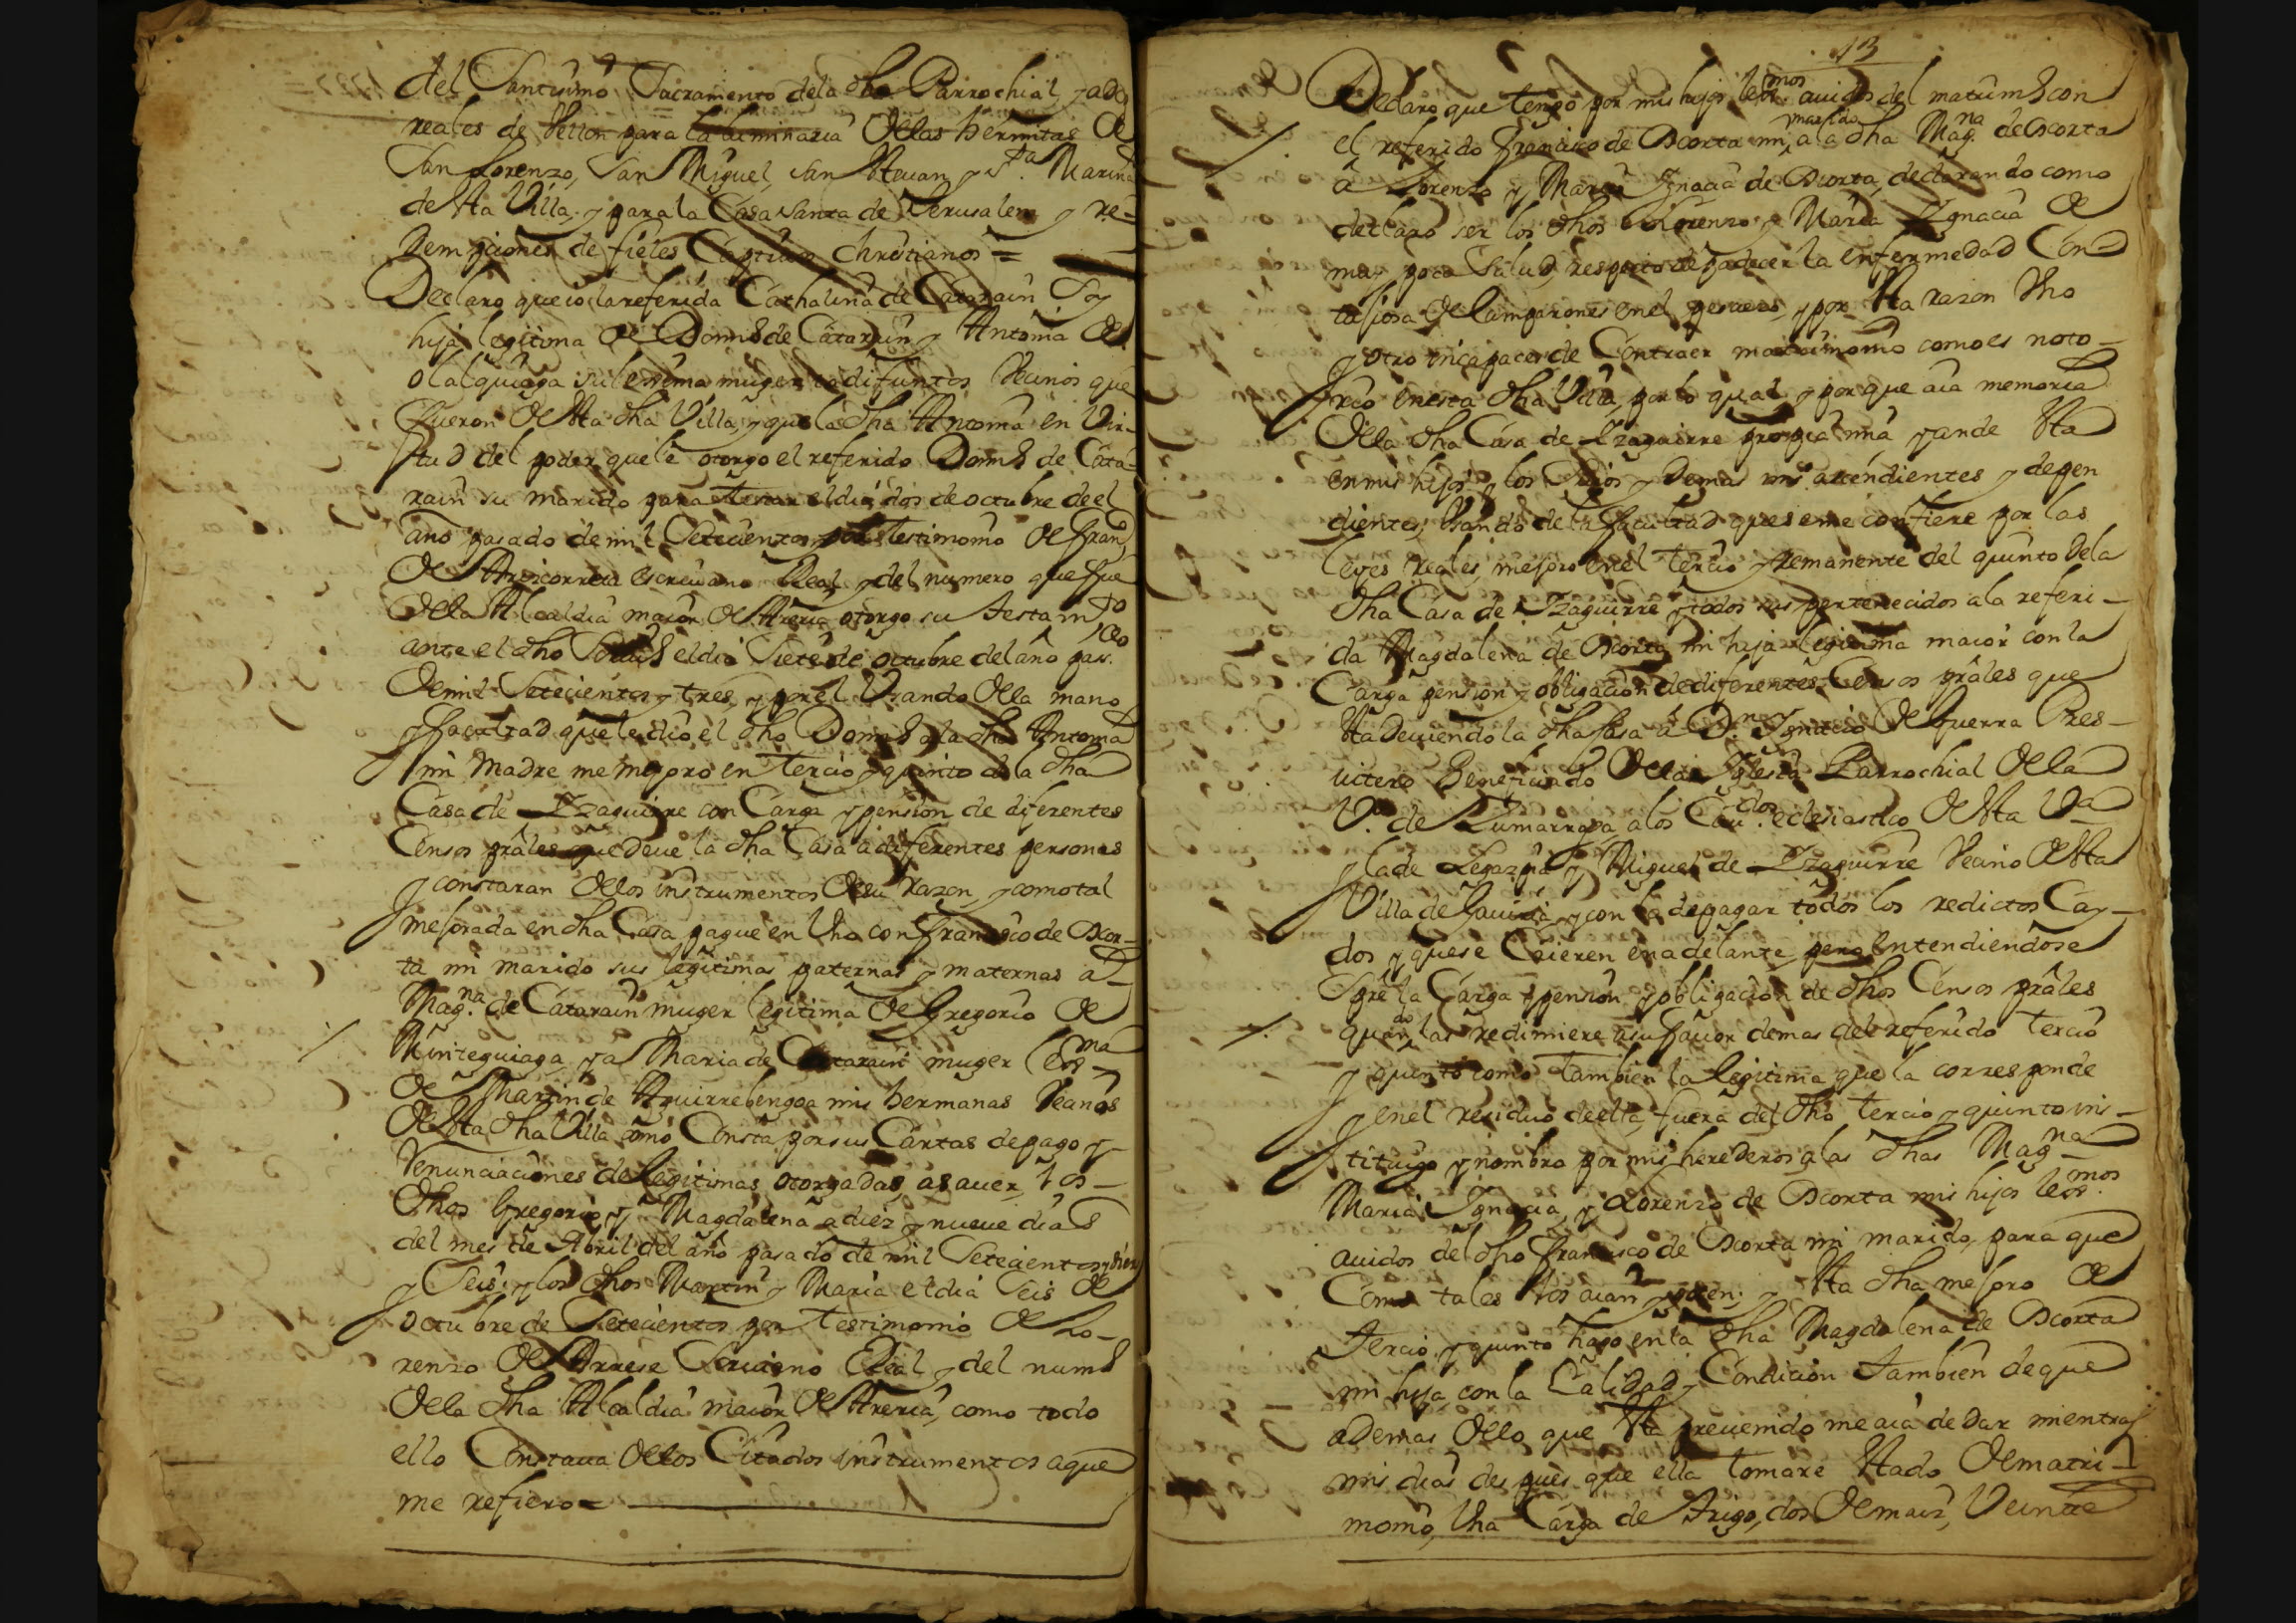 del Santissimo Sacramento de la dha Parrochial, y a dos
reales de Vellon para la luminaria de las hermitas de
San Lorenzo, San Miguel, San Estevan y Sta. Marina
de esta Villa, y para la Casa santa de Jerusalem y re-
dempciones de fieles Captivos Christianos =
Declaro que io la referida Cathalina de Catarain soy
hija legitima de Doming de Catarain y Antonia de
olalquiaga su lexitima muger ya difuntos Vecinos que
fueron de esta dha Villa, y que la dha Antonia en Vir-
tud del poder que le otorgo el referido Doming de Cata-
rain su marido para testar el dia dos de octubre de el
año pasado de mil Setecientos por testimonio de Franco
de Aroicorreta escrivano Real y del numero que fue
de la Alcaldia maior de Areria otorgo su testamto
ante el dho el dia Siete de octubre del año pasdo
de mil Setecientos y tres, y por el Usando de la mano
y facultad que le dio el dho Doming a la dha Antonia
mi Madre me mejoro en tercio y quinto de la dha
Casa de Yzaguirre con Carga y pension de diferentes
Censos prales que deve la dha Casa a diferentes personas
y constaran de los instrumentos de su razon, y como tal
mejorada en dha Casa pague en Uno con Francisco de Ascor-
ta mi marido sus legitimas paternas y maternas a
Magna. de Catarain muger legitima de Gregorio de
Minteguiaga, y a Maria de Catarain muger legma
de Martin de Aguirrebengoa mis hermanas Vecinos
de esta dha Villa como Consta por sus Cartas de pago y
Renunciaciones de legitimas otorgadas, as aver, los
dhos Gregorio y Magdalena a diez y nueve dias
del mes de Abril del año pasado de mil Setecientos y diez
y Seis; y los dhos Martin y Maria el dia Seis de
octubre de Setecientos por testimonio de Lo-
renzo de Arrese Scrivano Real y del num
de la dha Alcaldia maior de Areria, como todo
ello Constara de los Citados instrumentos a que
me refiero =
13
Declaro que tengo por mis hijos legmos avidos del matrim con
el referido Francisco de Ascorta mi marido a la dha Magna. de Ascorta
a Lorenzo y Maria Ignacia de Ascorta, declarando como
declaro ser los dhos Lorenzo y Maria Ygnacia de
muy poca Salud, respecto de padecer la enfermedad Con
tajiosa de lamparones en el pescuezo, y por esta razon Uno
y otro incapaces de Contraer matrimonio como es noto-
rio en esta dha Villa, por lo qual, y porque aia memoria
de la dha Casa de Yzaguirre propia mia y ande esta
en mis hijos y los suios y demas mis acendientes y depen
dientes; Usando de la facultad que se me confiere por las
leyes reales, mejoro en el tercio y remanente del quinto de la
dha Casa de Yzaguirre y todos sus pertenecidos a la referi-
da Magdalena de Ascorta mi hija legitima maior con la
Carga pension y obligacion de diferentes Censos prales que
esta deviendo la dha Casa a Dn. Ygnacio de Guerra Pres-
vitero Beneficiado de la Yglesia Parrochial de la
Va. de Zumarraga, a los Cavdos. eclesiastico de esta Va
y la de Legazpia y Miguel de Yzaguirre Vecino de esta
Villa de Gaviria, y con la de pagar todos los redictos Cay-
dos y que se Caieren en adelante, pero entendiendose
Sre la Carga pension y obligacion de dhos Censos prales
quando las redimiere a su favor demas del referido tercio
y quinto como tambien la legitima que la corresponde
y en el residuo de ella, fuera del dho tercio y quinto ins-
tituyo y nombro por mis herederos a las dhas Magna
Maria Ignacia, y Lorenzo de Ascorta mis hijos legmos.
avidos del dho Francisco de Ascorta mi marido, para que
Como tales los aian y gocen; y esta dha mejoro de
tercio y quinto hago en la dha Magdalena de Ascorta
mi hija, con la Calidad y Condicion tambien de que
ademas de lo que esta prevenido me aia de dar mientras
mis dias despues que ella tomare estado de matri-
monio, Una Carga de trigo, dos de maiz, Veinte